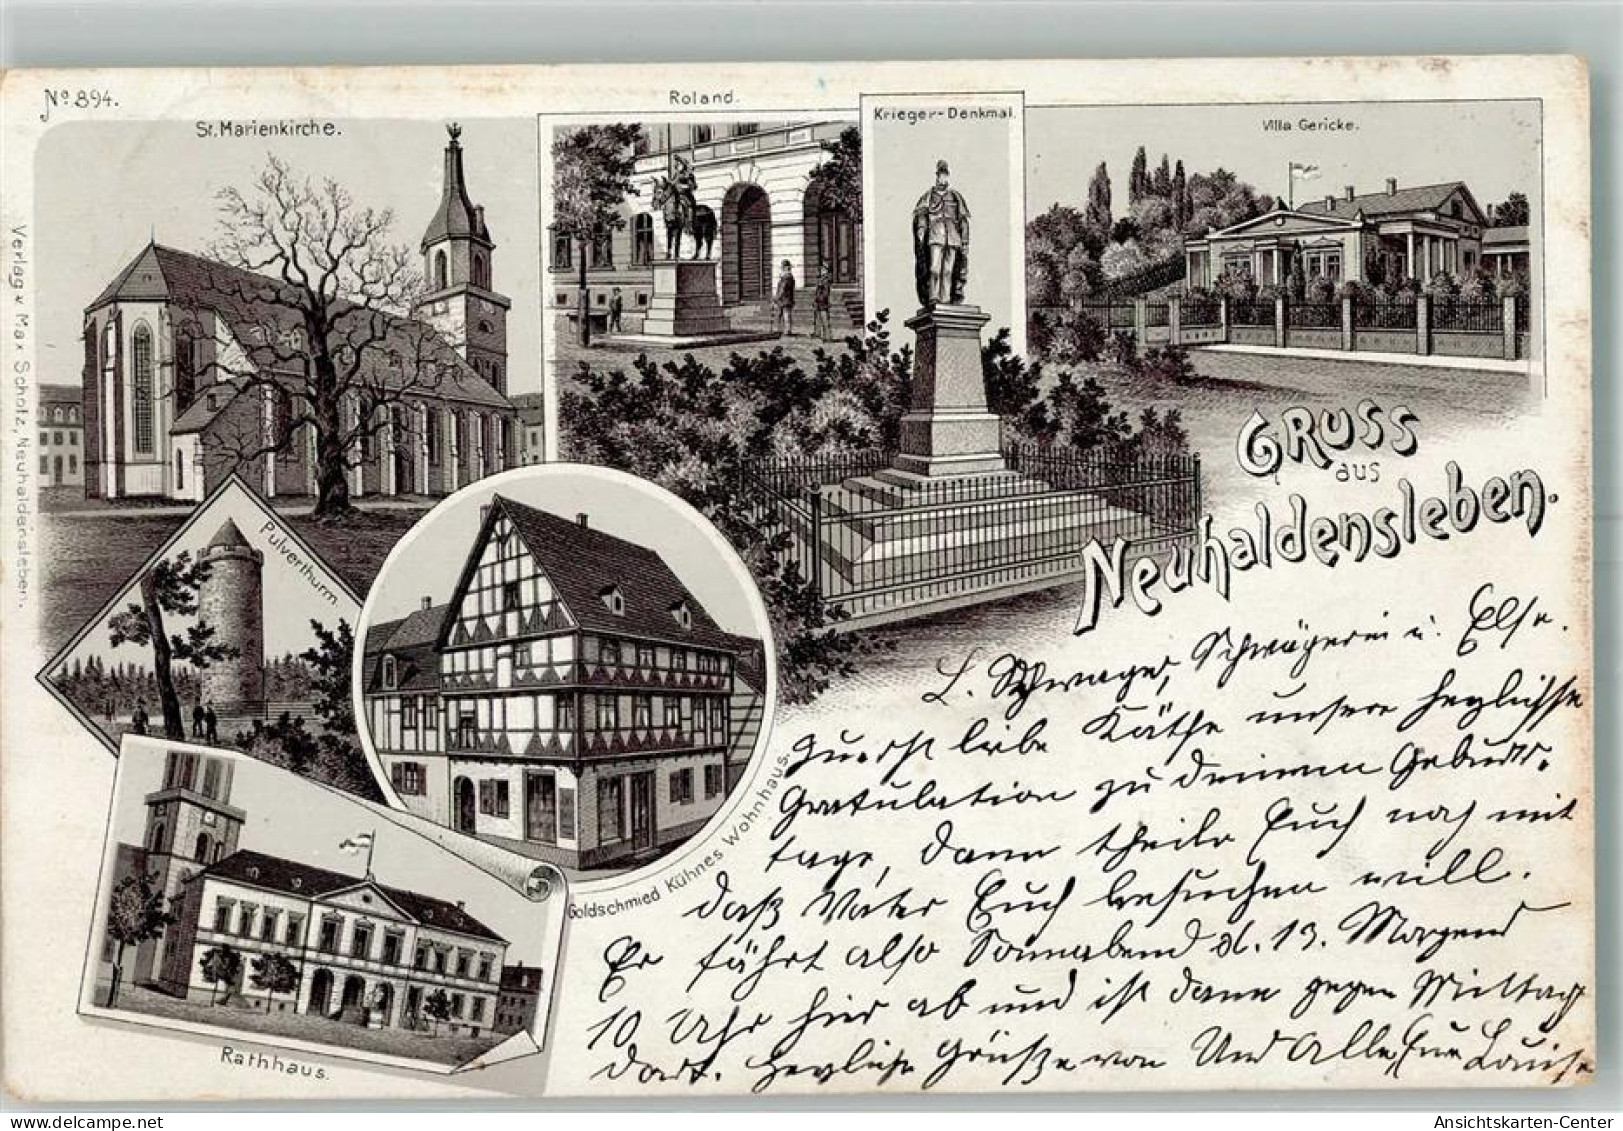 No 894.
St. Marienkirche.
Roland.
Krieger-Denkmal.
Villa Gericke.
Verlag v Max Scholz, Neuhaldensleben.
Gruss
aus
Neuhaldensleben.
Pulverthurm
Goldschmied Kühnes Wohnhaus.
Rathhaus.
L. Schwager, Schwägerin u. Else.
Zuerst liebe Käthe unsere herzlichste
Gratulation zu deinem Geburts-
tage, dann theile Euch noch mit
daß Vater Euch besuchen will.
Er fährt also Sonnabend d. 13. Morgend
10 Uhr hier ab und ist dann gegen Mittag
dort. Herzliche Grüße von Uns Allen, Eure Louise
Ansichtskarten-Center